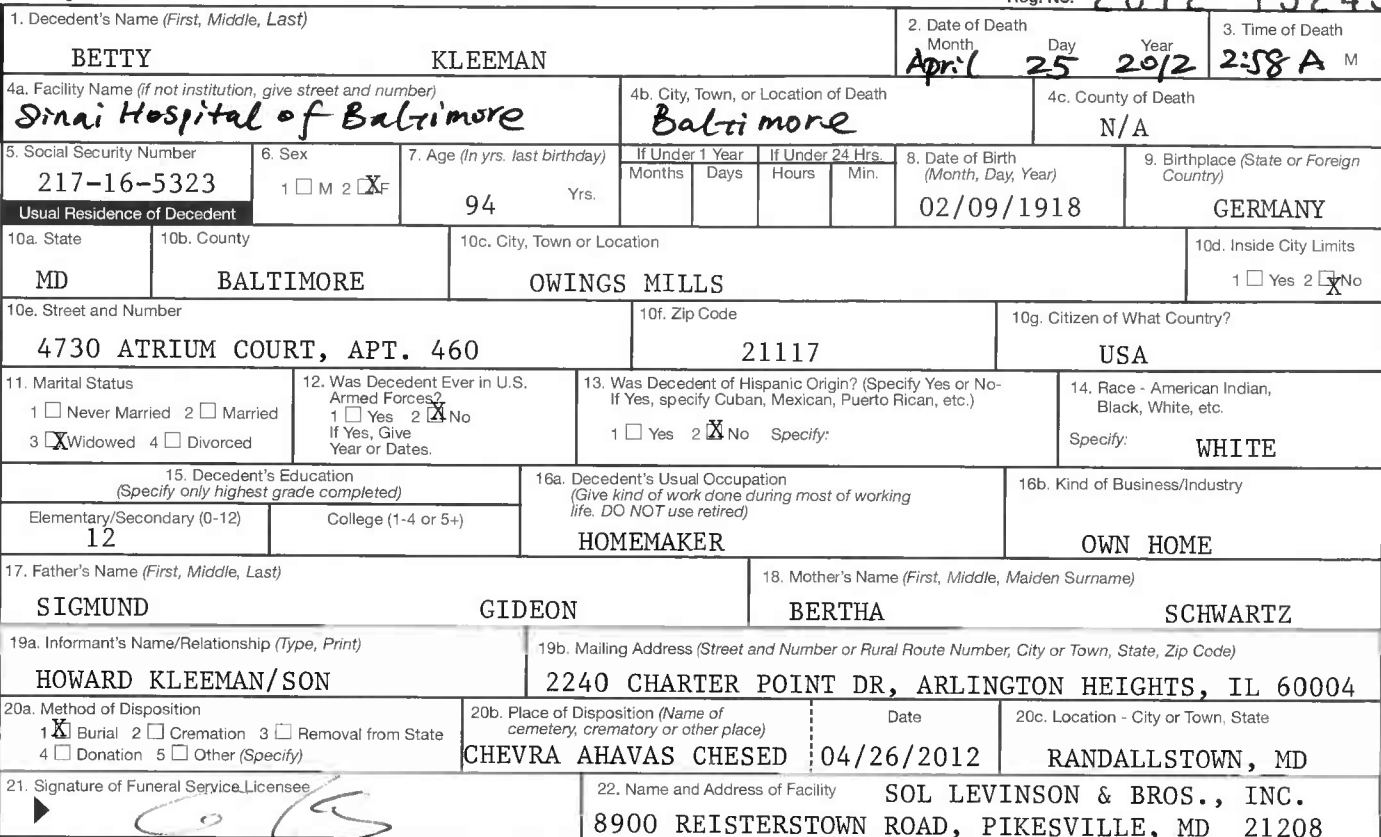 Reg. No. 2012
1. Decedent's Name (First, Middle, Last)
BETTY KLEEMAN
2. Date of Death
Month Day Year
April 25 2012
3. Time of Death
2:58 A M
4a. Facility Name (if not institution, give street and number)
Sinai Hospital of Baltimore
4b. City, Town, or Location of Death
Baltimore
4c. County of Death
N/A
5. Social Security Number
217-16-5323
6. Sex
1 ☐ M 2 ☒ F
7. Age (In yrs. last birthday)
94 Yrs.
If Under 1 Year
Months Days
If Under 24 Hrs.
Hours Min.
8. Date of Birth
(Month, Day, Year)
02/09/1918
9. Birthplace (State or Foreign
Country)
GERMANY
Usual Residence of Decedent
10a. State
MD
10b. County
BALTIMORE
10c. City, Town or Location
OWINGS MILLS
10d. Inside City Limits
1 ☐ Yes 2 ☒ No
10e. Street and Number
4730 ATRIUM COURT, APT. 460
10f. Zip Code
21117
10g. Citizen of What Country?
USA
11. Marital Status
1 ☐ Never Married 2 ☐ Married
3 ☒ Widowed 4 ☐ Divorced
12. Was Decedent Ever in U.S.
Armed Forces?
1 ☐ Yes 2 ☒ No
If Yes, Give
Year or Dates.
13. Was Decedent of Hispanic Origin? (Specify Yes or No-
If Yes, specify Cuban, Mexican, Puerto Rican, etc.)
1 ☐ Yes 2 ☒ No Specify:
14. Race - American Indian,
Black, White, etc.
Specify: WHITE
15. Decedent's Education
(Specify only highest grade completed)
Elementary/Secondary (0-12)
12
College (1-4 or 5+)
16a. Decedent's Usual Occupation
(Give kind of work done during most of working
life. DO NOT use retired)
HOMEMAKER
16b. Kind of Business/Industry
OWN HOME
17. Father's Name (First, Middle, Last)
SIGMUND GIDEON
18. Mother's Name (First, Middle, Maiden Surname)
BERTHA SCHWARTZ
19a. Informant's Name/Relationship (Type, Print)
HOWARD KLEEMAN/SON
19b. Mailing Address (Street and Number or Rural Route Number, City or Town, State, Zip Code)
2240 CHARTER POINT DR, ARLINGTON HEIGHTS, IL 60004
20a. Method of Disposition
1 ☒ Burial 2 ☐ Cremation 3 ☐ Removal from State
4 ☐ Donation 5 ☐ Other (Specify)
20b. Place of Disposition (Name of
cemetery, crematory or other place)
CHEVRA AHAVAS CHESED
Date
04/26/2012
20c. Location - City or Town, State
RANDALLSTOWN, MD
21. Signature of Funeral Service Licensee
22. Name and Address of Facility SOL LEVINSON & BROS., INC.
8900 REISTERSTOWN ROAD, PIKESVILLE, MD 21208